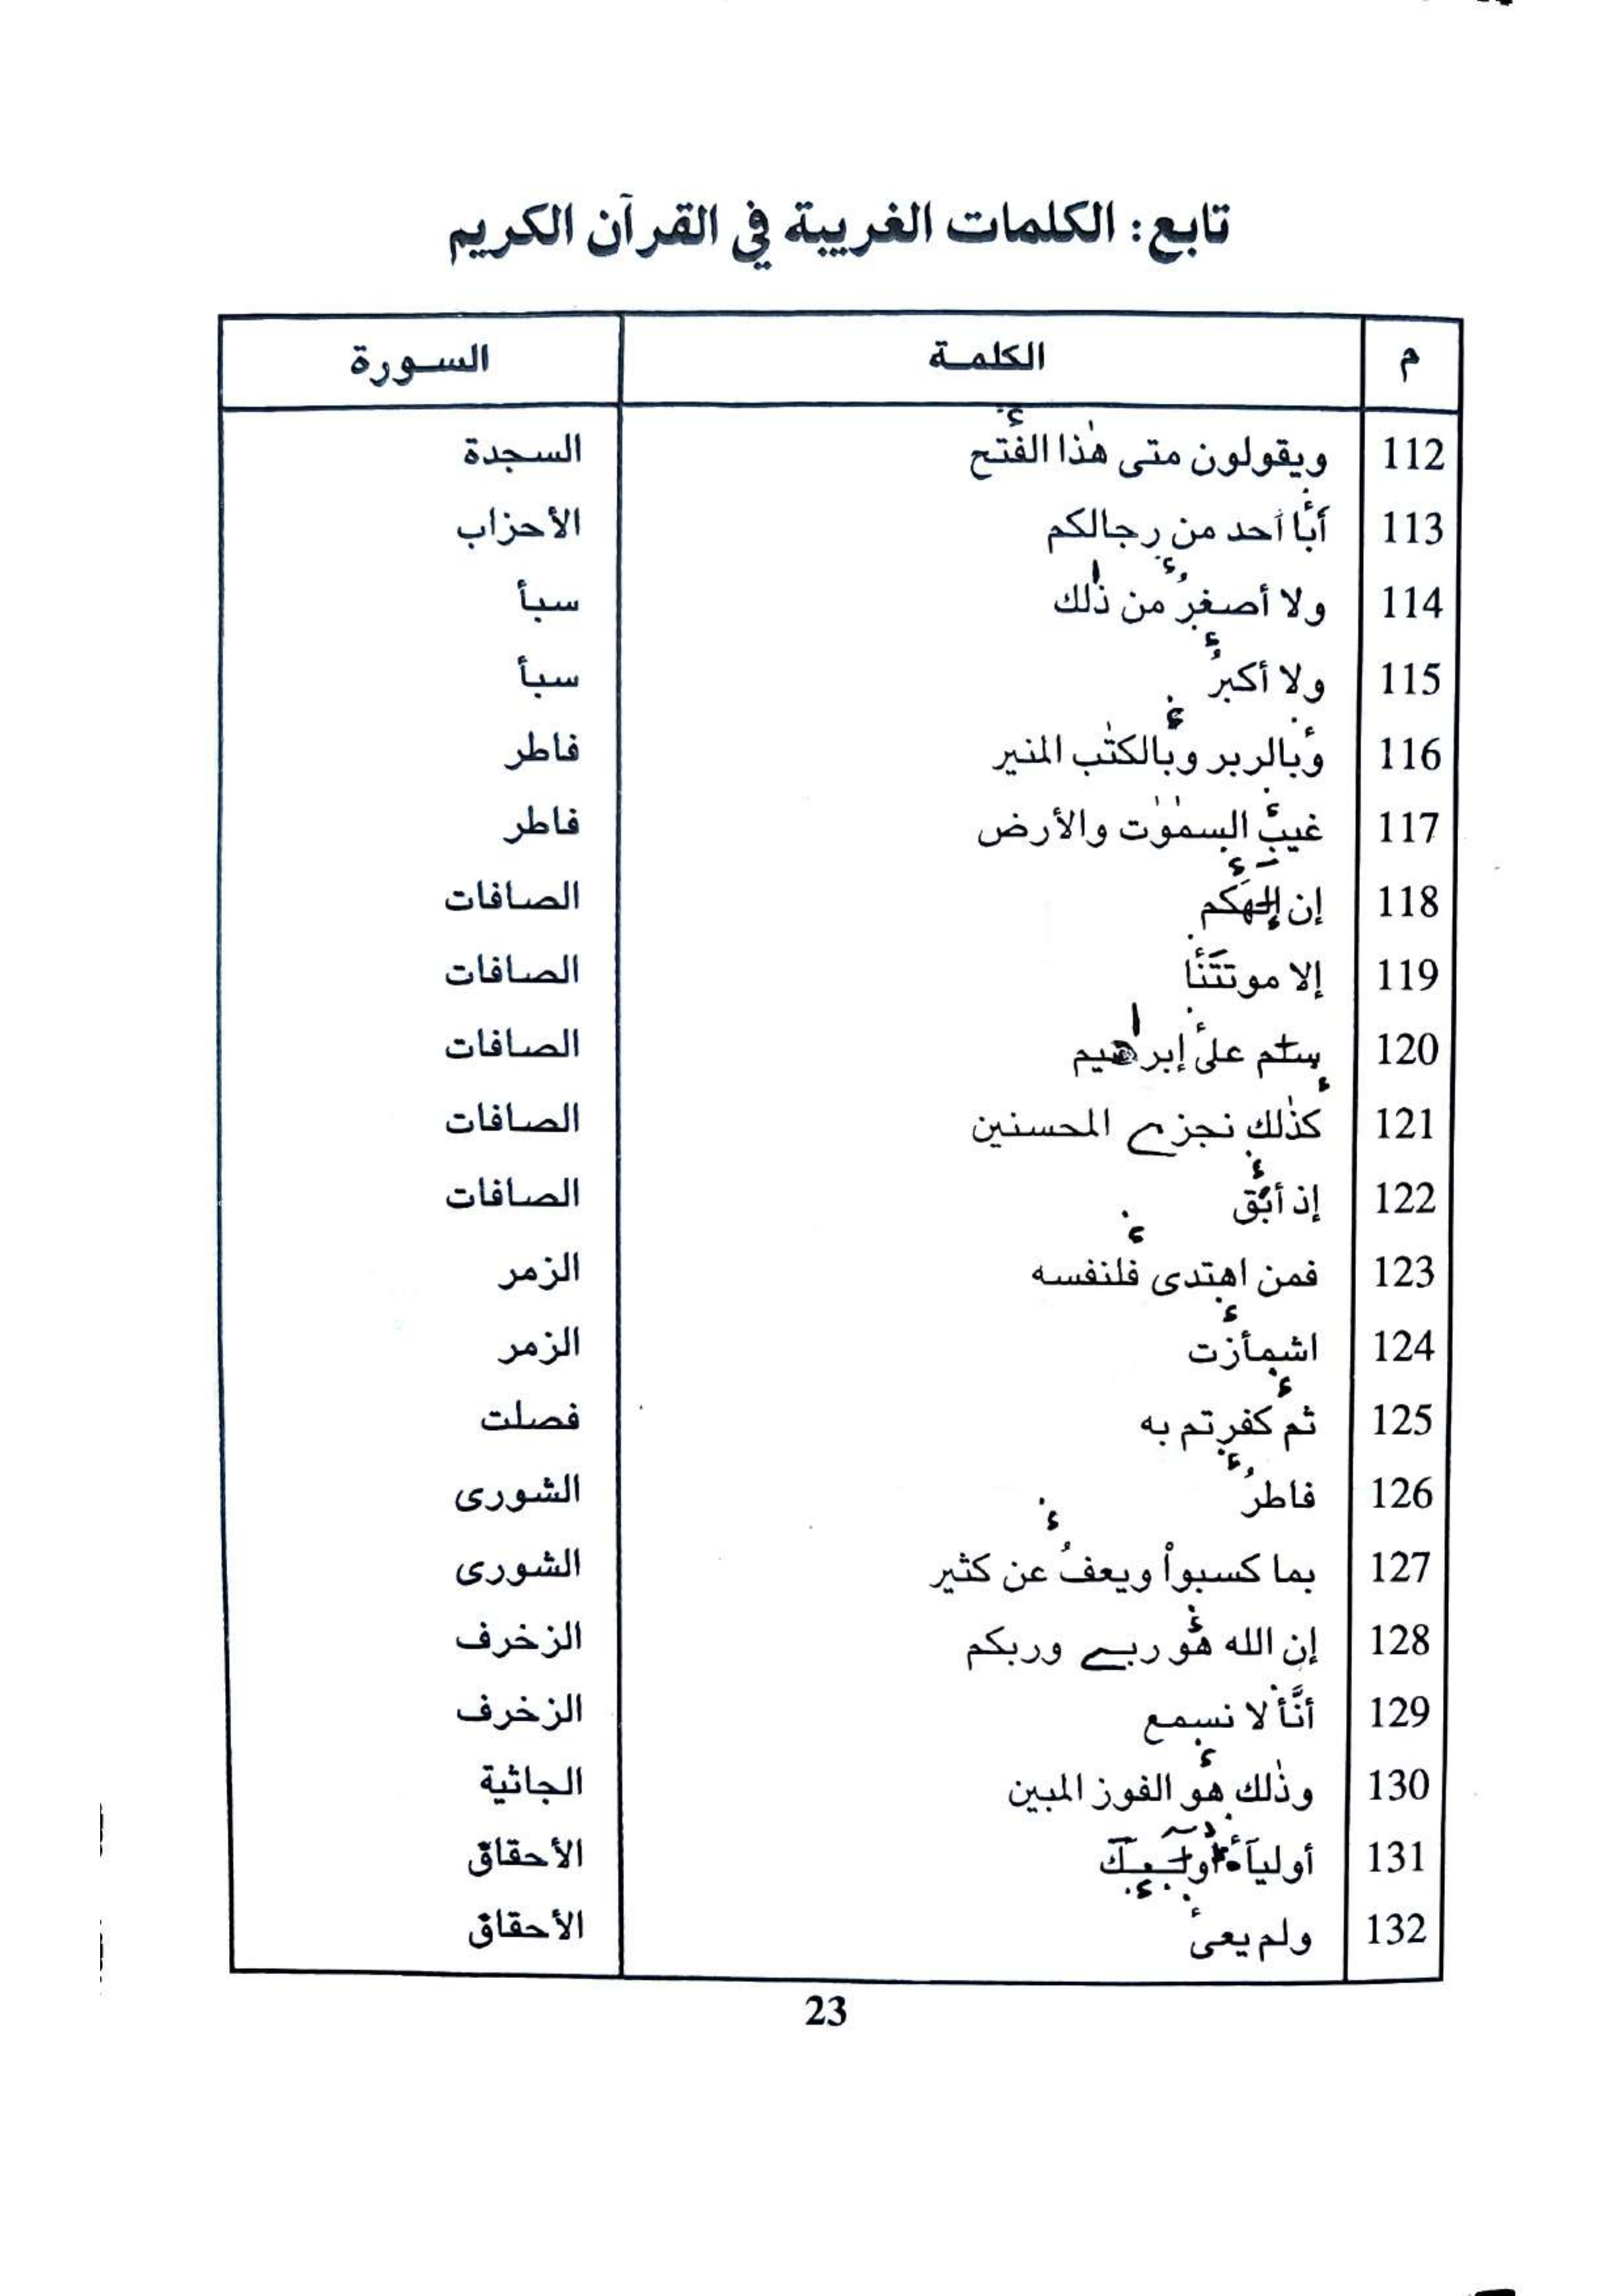 تابع: الكلمات الغريبة في القرآن الكريم
م الكلمة السورة
112 ويقولون متى هٰذا الفتح السجدة
113 أبا أحد من رجالكم الأحزاب
114 ولا أصغرُ من ذٰلك سبأ
115 ولا أكبرُ سبأ
116 وبالربر وبالكتٰب المنير فاطر
117 غيب السمٰوٰت والأرض فاطر
118 إن إلٰهَكم الصافات
119 إلا موتتَنا الصافات
120 سلٰم على إبراهيم الصافات
121 كذٰلك نجزے المحسنين الصافات
122 إذ أبق الصافات
123 فمن اهتدى فلنفسه الزمر
124 اشمأزت الزمر
125 ثم كفرتم به فصلت
126 فاطرُ الشورى
127 بما كسبواْ ويعفُ عن كثير الشورى
128 إن الله هو ربے وربكم الزخرف
129 أنَّا لا نسمع الزخرف
130 وذٰلك هو الفوز المبين الجاثية
131 أوليآءُ أولٰٓئك الأحقاق
132 ولم يعى الأحقاق
23